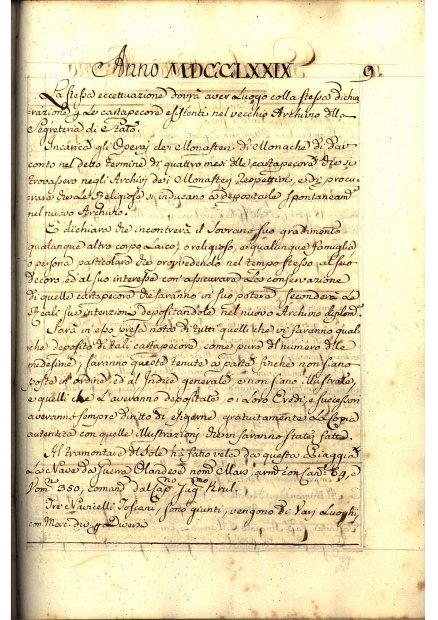 Anno MDCCLXXIX 9.
La stessa eccettuazione dovrà aver Luogo colla stessa dichia
razione p le cartapecore esistenti nel vecchio Archivio dlla
Segreteria di Stato.
Incarica gli Operaj dei Monasteri di Monache di dar
conto nel detto termine di quattro mesi dlle cartapecore che si
trovassero negli Archivj dei Monasterj respettivi, e di procu
rare che le Religiose si inducano a depositarle spontaneamte
nel nuovo Archivio.
E dichiara che incontrerà il Sovrano suo gradimento
qualunque altro corpo Laico, o religioso, e qualunque famiglia
o persona particolare che provvedendo nel tempo stesso al suo
decoro, ed al suo interesse con assicurare la conservazione
di quelle cartapecore che saranno in suo potere, seconderà le
Reali sue intenzioni depositandole nel nuovo Archivio
Sarà in esso presa nota di tutti quelli che vi faranno qual
che deposito di tali cartapecore, come pure del numero dlle
medesime, saranno queste tenute a parte finche non siano
poste in ordine, ed al Indice generale e non siano illustrate,
e quelli che l'averanno depositate, o i loro Eredi, e successori
averanno sempre diritto di esigerne gratuitamente la Copia
autentica con quelle illustrazioni che vi saranno state fatte.
Al tramontare del Sole ha fatto vela da questa Spiaggia
La Nave da Guerra Olandese nomta Mars, armta con Canni 69, e
Nomri 350, comandta dal Capno Krul.
Tre Navicelli Toscani, sono giunti, vengono da Varj Luoghi,
con Merci div. p Diversi